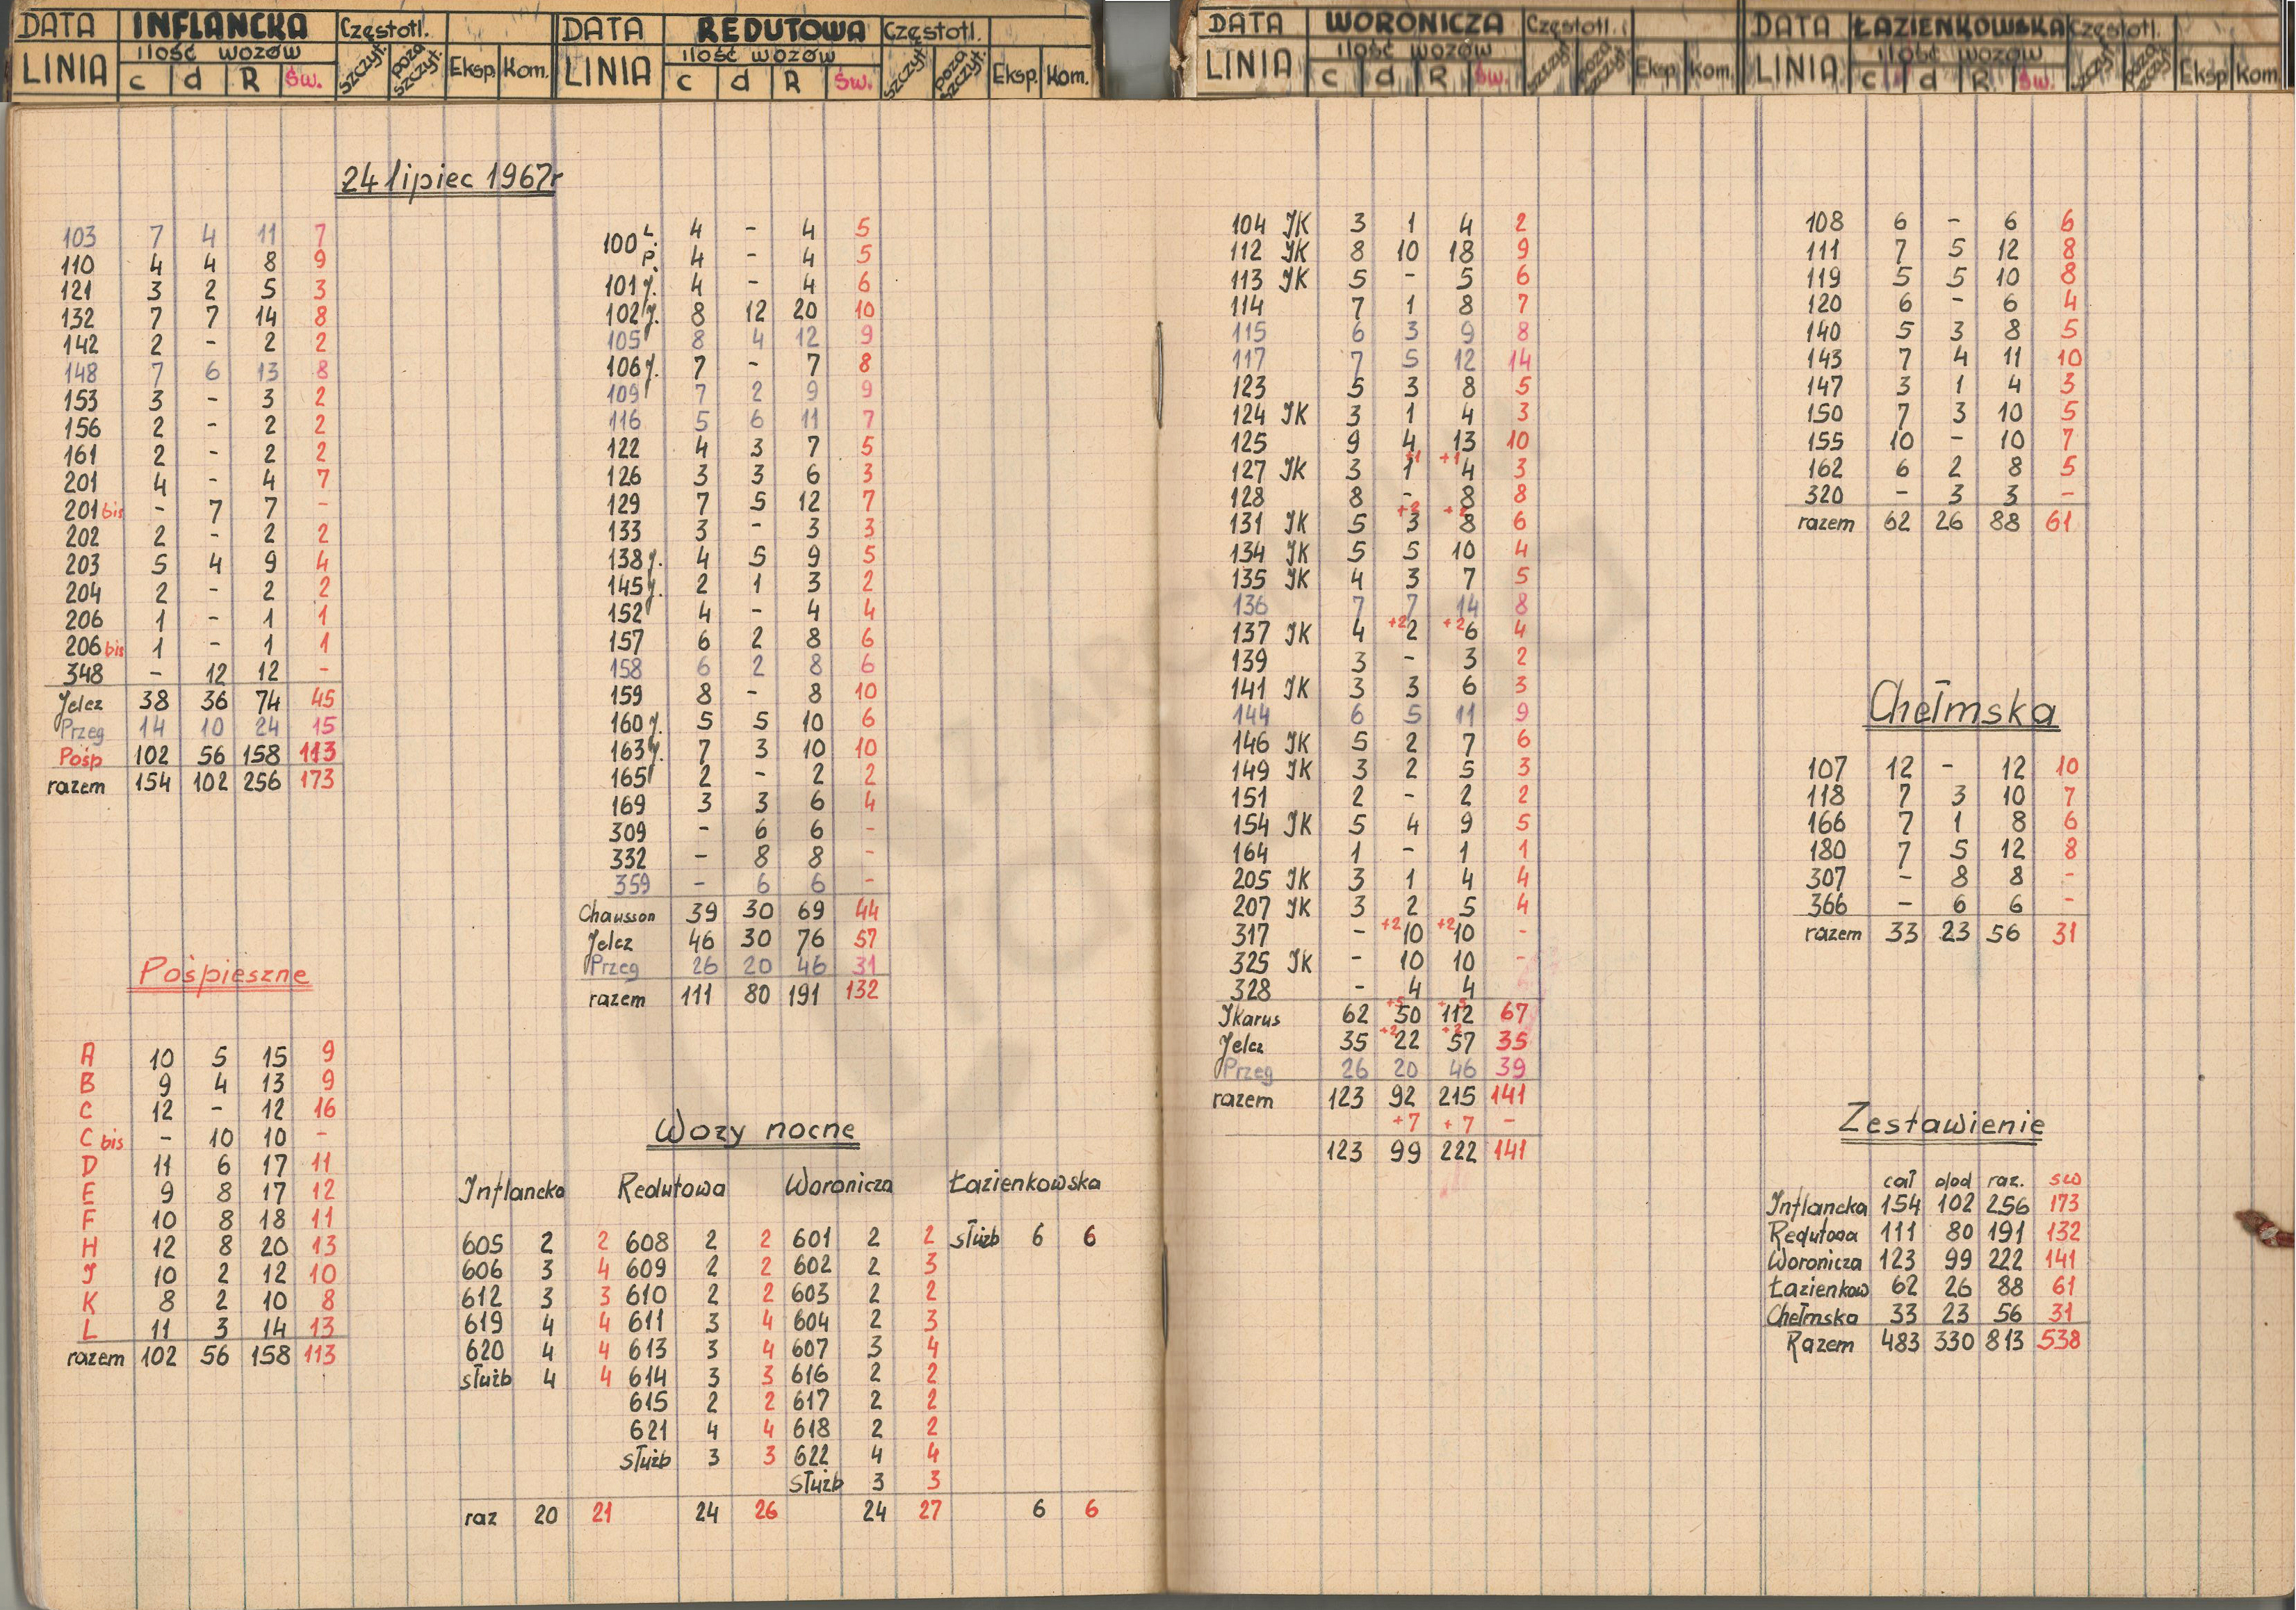 DATA INFLANCKA Częstotl.
LINIA ilość wozów szczyt. poza szczyt. Eksp. Kom.
c d R Św.
DATA REDUTOWA Częstotl.
LINIA ilość wozów szczyt. poza szczyt. Eksp. Kom.
c d R Św.
DATA WORONICZA Częstotl.
LINIA ilość wozów szczyt. poza szczyt. Eksp. Kom.
c d R Św.
DATA ŁAZIENKOWSKA Częstotl.
LINIA ilość wozów szczyt. poza szczyt. Eksp. Kom.
c d R Św.
24 lipiec 1967r
103 7 4 11 7
110 4 4 8 9
121 3 2 5 3
132 7 7 14 8
142 2 - 2 2
148 7 6 13 8
153 3 - 3 2
156 2 - 2 2
161 2 - 2 2
201 4 - 4 7
201 bis - 7 7 -
202 2 - 2 2
203 5 4 9 4
204 2 - 2 2
206 1 - 1 1
206 bis 1 - 1 1
348 - 12 12 -
Jelcz 38 36 74 45
Przeg 14 10 24 15
Pośp 102 56 158 113
razem 154 102 256 173
Pośpieszne
A 10 5 15 9
B 9 4 13 9
C 12 - 12 16
C bis - 10 10 -
D 11 6 17 11
E 9 8 17 12
F 10 8 18 11
H 12 8 20 13
J 10 2 12 10
K 8 2 10 8
L 11 3 14 13
razem 102 56 158 113
100 L. 4 - 4 5
P. 4 - 4 5
101 J. 4 - 4 6
102 J. 8 12 20 10
105 8 4 12 9
106 J. 7 - 7 8
109 7 2 9 9
116 5 6 11 7
122 4 3 7 5
126 3 3 6 3
129 7 5 12 7
133 3 - 3 3
138 J. 4 5 9 5
145 J. 2 1 3 2
152 4 - 4 4
157 6 2 8 6
158 6 2 8 6
159 8 - 8 10
160 J. 5 5 10 6
163 J. 7 3 10 10
165 2 - 2 2
169 3 3 6 4
309 - 6 6 -
332 - 8 8 -
359 - 6 6 -
Chausson 39 30 69 44
Jelcz 46 30 76 57
Przeg 26 20 46 31
razem 111 80 191 132
Wozy nocne
Inflancka Redutowa Woronicza Łazienkowska
605 2 2 608 2 2 601 2 2 służb 6 6
606 3 4 609 2 2 602 2 3
612 3 3 610 2 2 603 2 2
619 4 4 611 3 4 604 2 3
620 4 4 613 3 4 607 3 4
służb 4 4 614 3 3 616 2 2
615 2 2 617 2 2
621 4 4 618 2 2
służb 3 3 622 4 4
służb 3 3
raz 20 21 24 26 24 27 6 6
104 JK 3 1 4 2
112 JK 8 10 18 9
113 JK 5 - 5 6
114 7 1 8 7
115 6 3 9 8
117 7 5 12 14
123 5 3 8 5
124 JK 3 1 4 3
125 9 4 13 10
127 JK 3 +1 1 +1 4 3
128 8 - 8 8
131 JK 5 +2 3 +2 8 6
134 JK 5 5 10 4
135 JK 4 3 7 5
136 7 7 14 8
137 JK 4 +2 2 +2 6 4
139 3 - 3 2
141 JK 3 3 6 3
144 6 5 11 9
146 JK 5 2 7 6
149 JK 3 2 5 3
151 2 - 2 2
154 JK 5 4 9 5
164 1 - 1 1
205 JK 3 1 4 4
207 JK 3 2 5 4
317 - +2 10 +2 10 -
325 JK - 10 10 -
328 - 4 4
Jkarus 62 +5 50 +5 112 67
Jelcz 35 +2 22 +2 57 35
Przeg 26 20 46 39
razem 123 92 215 141
+7 +7 -
123 99 222 141
108 6 - 6 6
111 7 5 12 8
119 5 5 10 8
120 6 - 6 4
140 5 3 8 5
143 7 4 11 10
147 3 1 4 3
150 7 3 10 5
155 10 - 10 7
162 6 2 8 5
320 - 3 3 -
razem 62 26 88 61
Chełmska
107 12 - 12 10
118 7 3 10 7
166 7 1 8 6
180 7 5 12 8
307 - 8 8 -
366 - 6 6 -
razem 33 23 56 31
Zestawienie
cał dod raz. św
Inflancka 154 102 256 173
Redutowa 111 80 191 132
Woronicza 123 99 222 141
Łazienkow 62 26 88 61
Chełmska 33 23 56 31
Razem 483 330 813 538